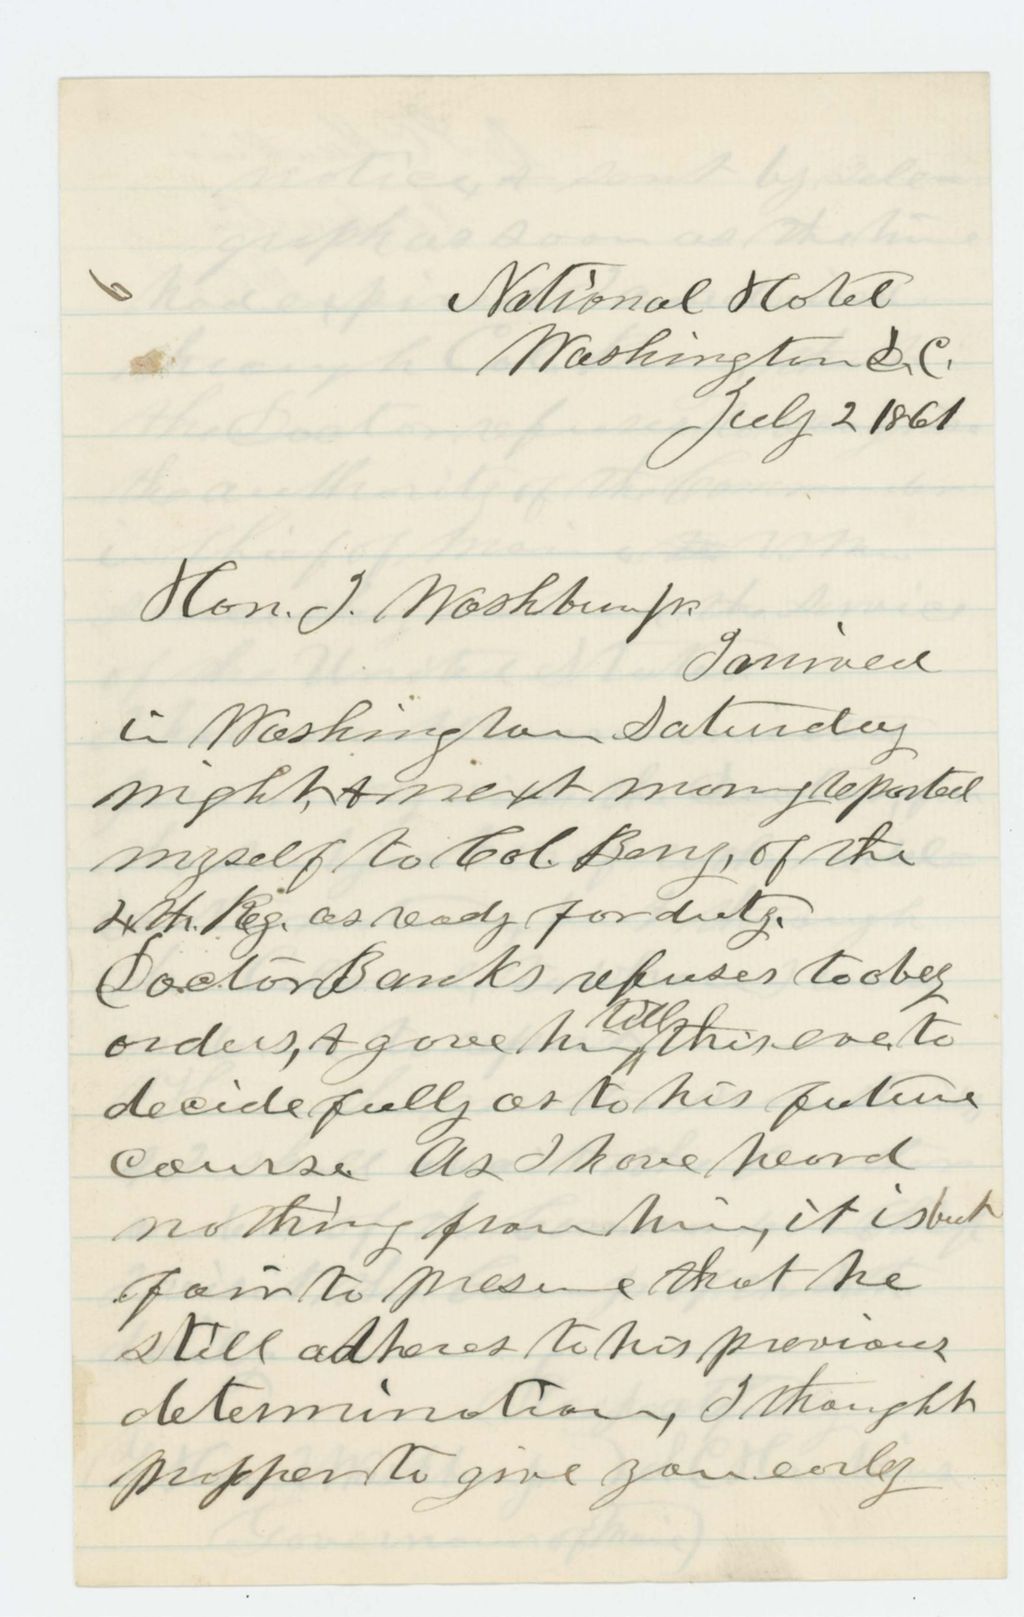 6
National Hotel
Washington D. C.
July 2 1861
Hon. I. Washburn Jr.
I arrived
in Washington Saturday
night, & next morning reported
myself to Col. Berry, of the
4th. Reg. as ready for duty.
Doctor Banks refuses to obey
orders, & gave him till this eve. to
decide fully as to his future
course. As I have heard
nothing from him, it is but
fair to presume that he
still adheres to his previous
determination, I thought
propper to give you early